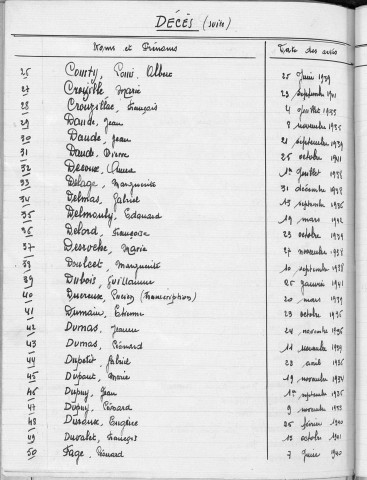 DÉCÈS (suite)
Noms et Prénoms Date des actes
25 Courty, Louis, Albert 25 Juin 1939
27 Croizille, Marie 23 septembre 1941
28 Crouzillac, François 4 Juillet 1933
29 Daude, Jean 8 novembre 1935
30 Daude, Jean 21 septembre 1939
31 Daude, Pierre 25 octobre 1941
32 1er Juillet 1938
33 Delage, Marguerite 31 décembre 1938
34 Delmas, Gabriel 15 septembre 1936
35 Delmouly, Edouard 19 mars 1942
36 Delord, Françoise 23 octobre 1939
37 Desroche, Marie 27 novembre 1938
38 Doulcet, Marguerite 10 septembre 1938
39 Dubois, Guillaume 25 janvier 1941
40 Ducroux, (Transcription) 20 mars 1939
41 Dumain, Etienne 23 octobre 1936
42 Dumas, Jeanne 24 novembre 1936
43 Dumas, Léonard 11 novembre 1939
44 Dupetit, Gabriel 23 août 1936
45 Dupont, Marie 19 novembre 1934
46 Dupuy, Jean 1er septembre 1935
47 Dupuy, Léonard 9 novembre 1933
48 Durieux, Eugène 25 février 1940
49 Duvalet, François 13 octobre 1941
50 Fage, Léonard 7 Juin 1940